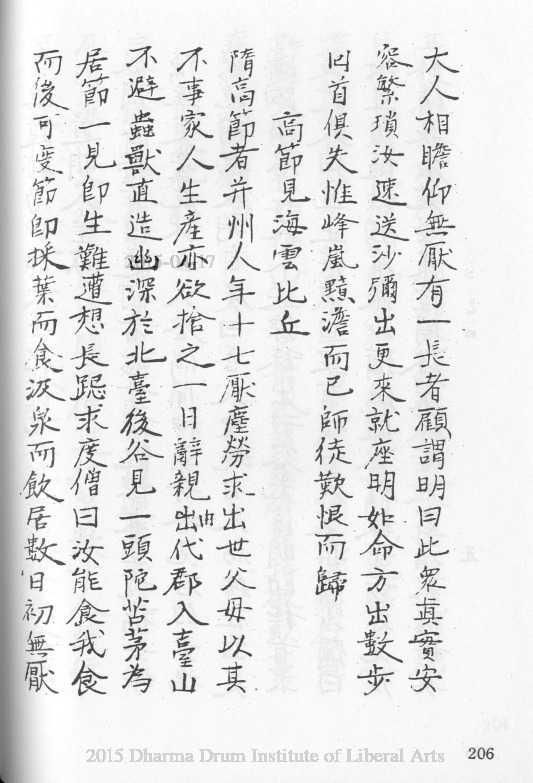 大人相瞻仰無厭有一長者顧謂明曰此眾真實安
容繁瑣汝速送沙彌出更來就座明如命方出數步
回首俱失惟峰嵐黯澹而已師徒歎恨而歸
高節見海雲比丘
隋高節者并州人年十七厭塵勞求出世父母以其
不事家人生產亦欲捨之一日辭親出由代郡入臺山
不避蟲獸直造幽深於北臺後谷見一頭陀苫茅為
居節一見即生難遭想長跽求度僧曰汝能食我食
而後可度節即採葉而食汲泉而飲居數日初無厭
2015 Dharma Drum Institute of Liberal Arts
206